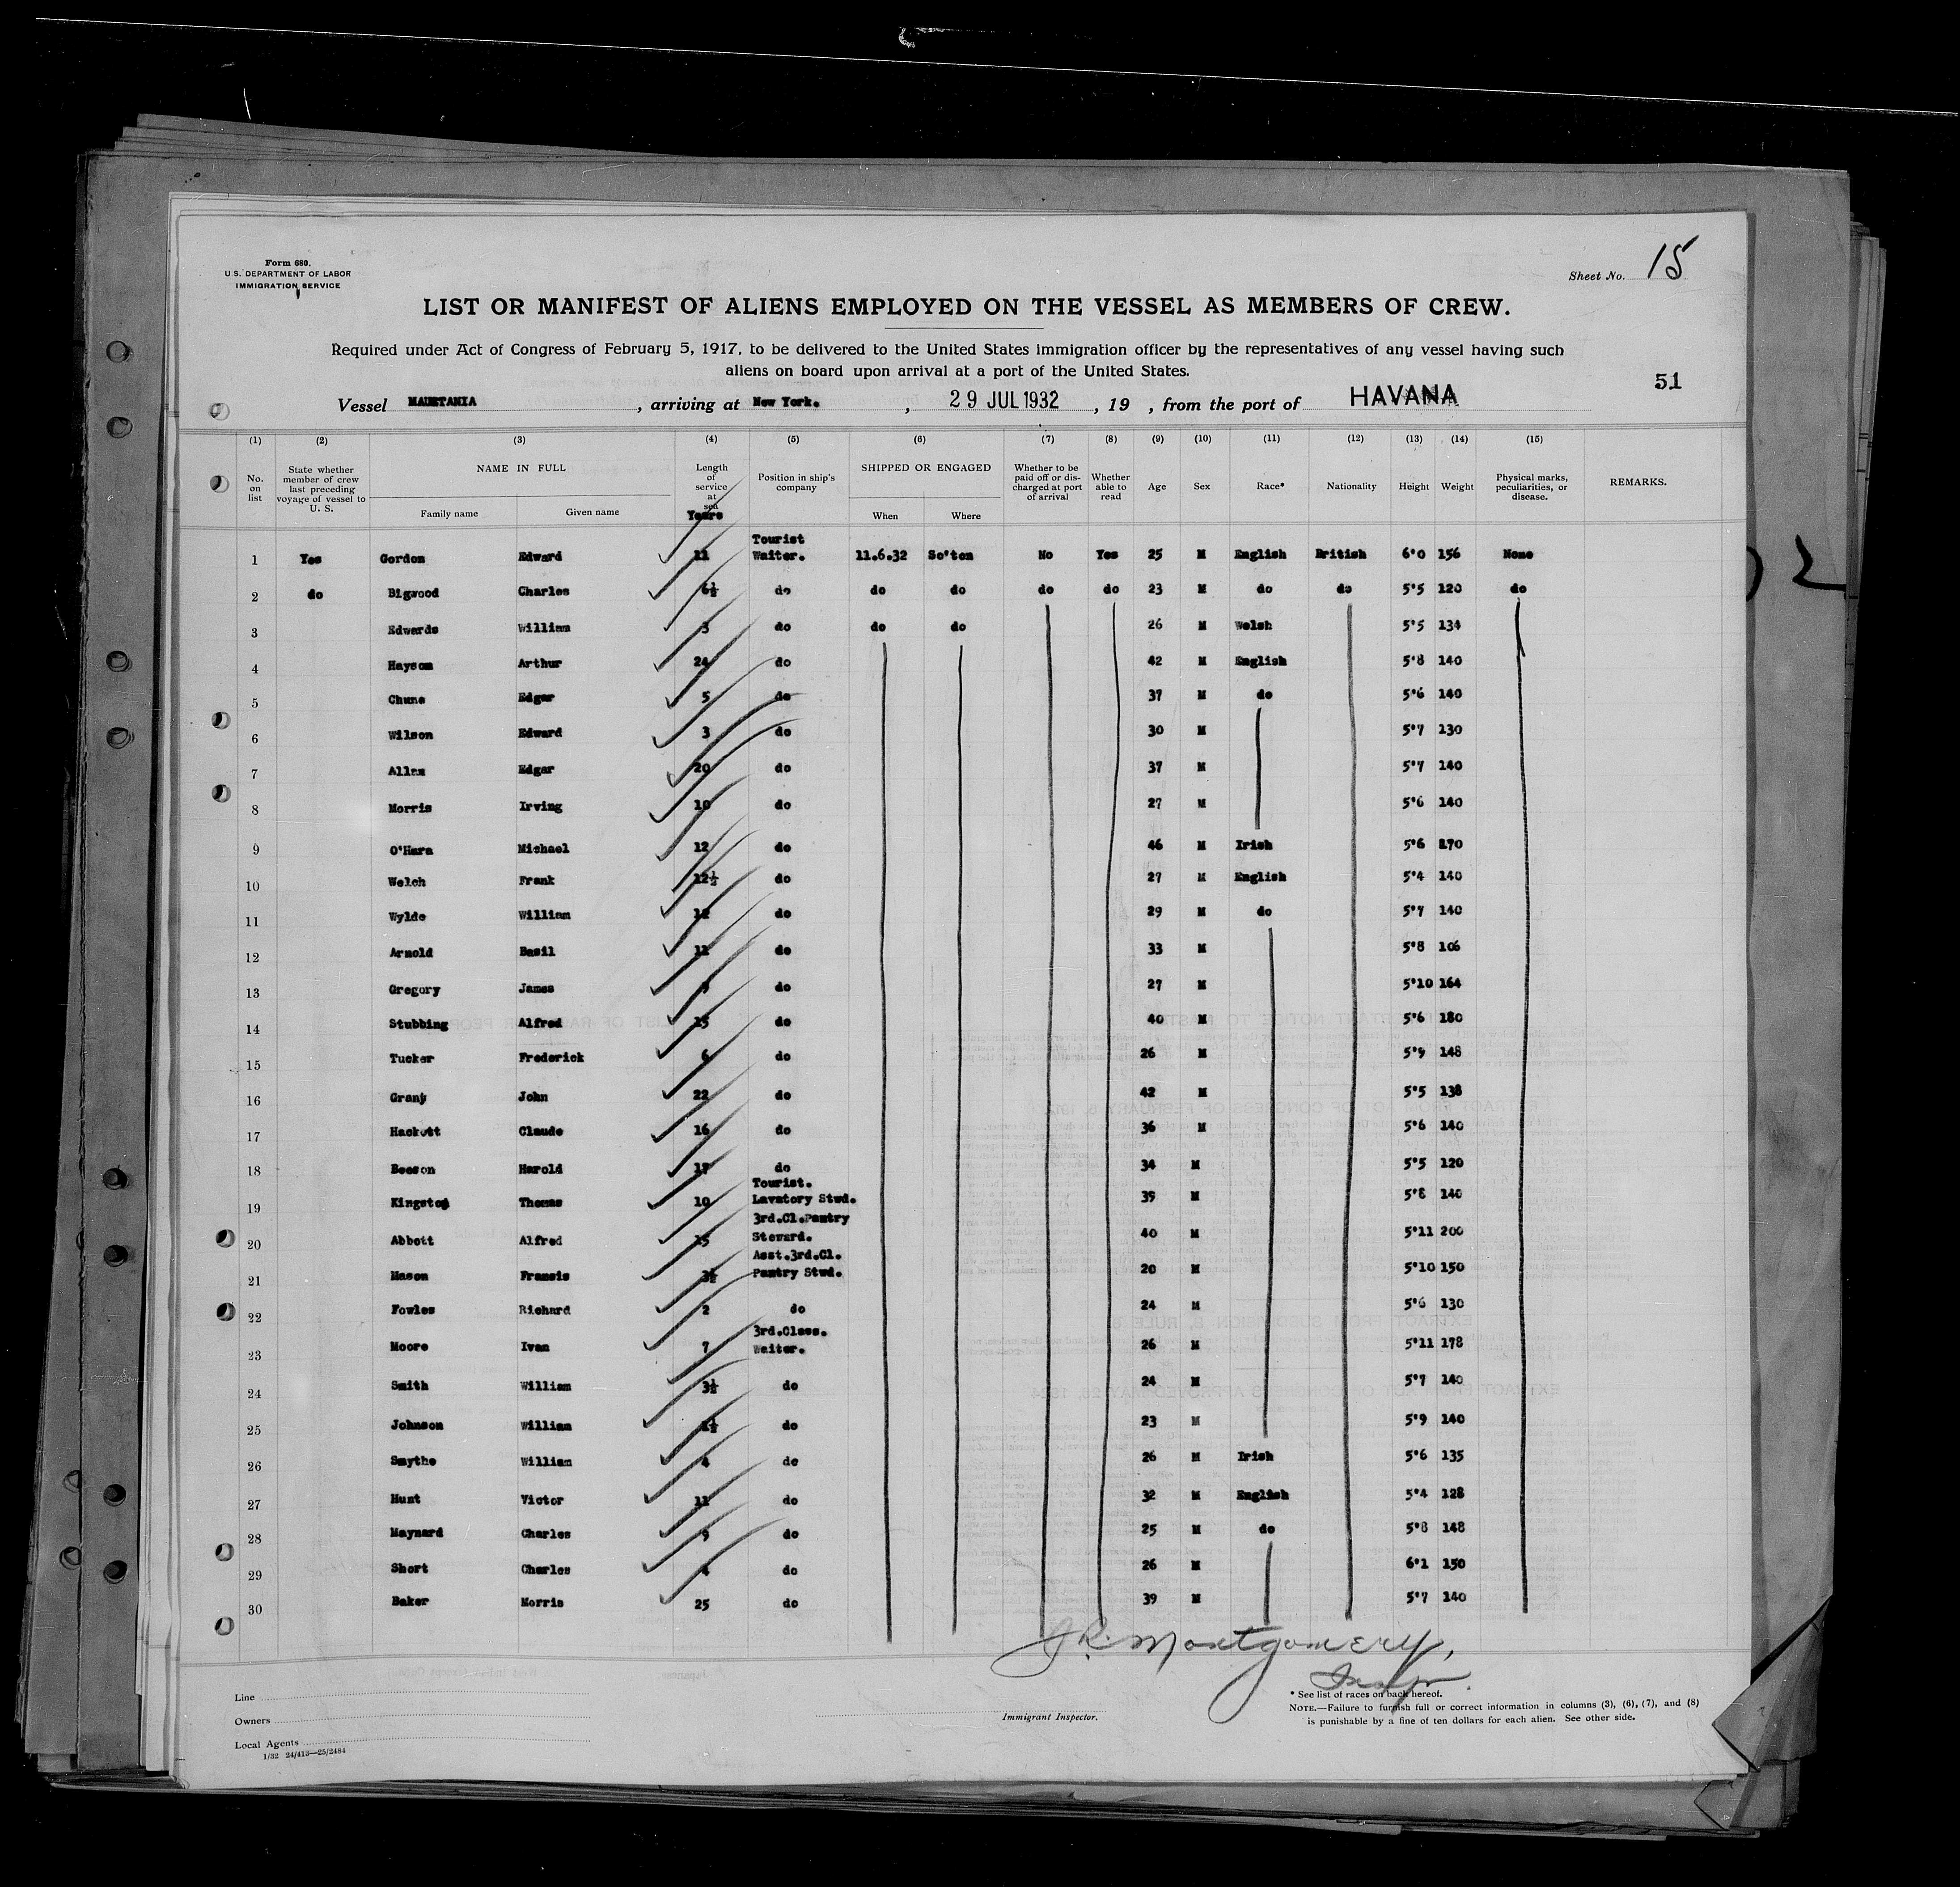 Form 680.
U. S. DEPARTMENT OF LABOR
IMMIGRATION SERVICE
Sheet No. 15
LIST OR MANIFEST OF ALIENS EMPLOYED ON THE VESSEL AS MEMBERS OF CREW.
Required under Act of Congress of February 5, 1917, to be delivered to the United States immigration officer by the representatives of any vessel having such
aliens on board upon arrival at a port of the United States.
51
Vessel MAURETANIA , arriving at New York. , 29 JUL 1932 , 19 , from the port of HAVANA
(1) (2) (3) (4) (5) (6) (7) (8) (9) (10) (11) (12) (13) (14) (15)
No. on list State whether member of crew last preceding voyage of vessel to U. S. NAME IN FULL Family name Given name Length of service at sea Years Position in ship's company SHIPPED OR ENGAGED When Where Whether to be paid off or discharged at port of arrival Whether able to read Age Sex Race* Nationality Height Weight Physical marks, peculiarities, or disease. REMARKS.
1 Yes Gordon Edward 11 Tourist Waiter. 11.6.32 So'ton No Yes 25 M English British 6'0 156 None
2 do Bigwood Charles 6½ do do do do do 23 M do do 5'5 120 do
3 Edwards William 3 do do do 26 M Welsh 5'5 134
4 Haysom Arthur 24 do 42 M English 5'8 140
5 Chune Edgar 5 do 37 M do 5'6 140
6 Wilson Edward 3 do 30 M 5'7 130
7 Allen Edgar 20 do 37 M 5'7 140
8 Morris Irving 10 do 27 M 5'6 140
9 O'Hara Michael 12 do 46 M Irish 5'6 170
10 Welch Frank 12½ do 27 M English 5'4 140
11 Wylde William 12 do 29 M do 5'7 140
12 Arnold Basil 12 do 33 M 5'8 106
13 Gregory James do 27 M 5'10 164
14 Stubbing Alfred 15 do 40 M 5'6 180
15 Tucker Frederick 6 do 26 M 5'9 148
16 Grant John 22 do 42 M 5'5 138
17 Hackett Claude 16 do 36 M 5'6 140
18 Beeson Harold 17 do 34 M 5'5 120
19 Kingston Thomas 10 Tourist. Lavatory Stwd. 39 M 5'8 140
20 Abbott Alfred 15 3rd.Cl.Pantry Steward. 40 M 5'11 200
21 Mason Francis 3½ Asst.3rd.Cl. Pantry Stwd. 20 M 5'10 150
22 Fowles Richard 2 do 24 M 5'6 130
23 Moore Ivan 7 3rd.Class. Waiter. 26 M 5'11 178
24 Smith William 3½ do 24 M 5'7 140
25 Johnson William do 23 M 5'9 140
26 Smythe William 4 do 26 M Irish 5'6 135
27 Hunt Victor 11 do 32 M English 5'4 128
28 Maynard Charles 9 do 25 M do 5'8 148
29 Short Charles 4 do 26 M 6'1 150
30 Baker Morris 25 do 39 M 5'7 140
J R. Montgomery,
Insp.
Line
Owners
Local Agents
1/32 24/413—25/2484
Immigrant Inspector.
* See list of races on back hereof.
NOTE.—Failure to furnish full or correct information in columns (3), (6), (7), and (8)
is punishable by a fine of ten dollars for each alien. See other side.